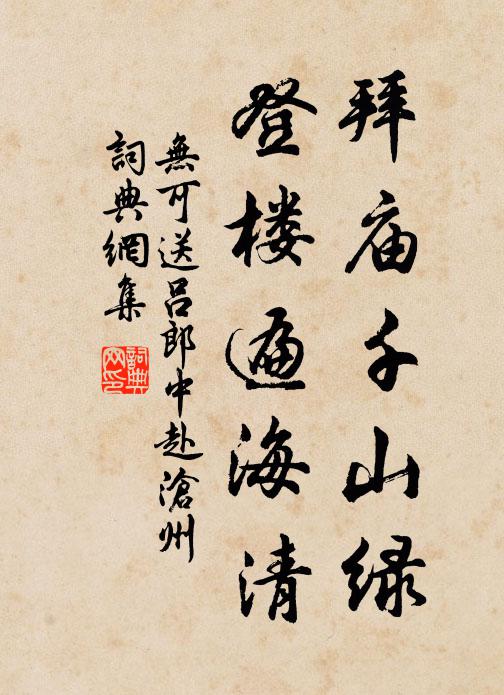 拜庙千山绿
登楼遍海清
無可送吕郎中赴滄州
詞典網集
詞典網印